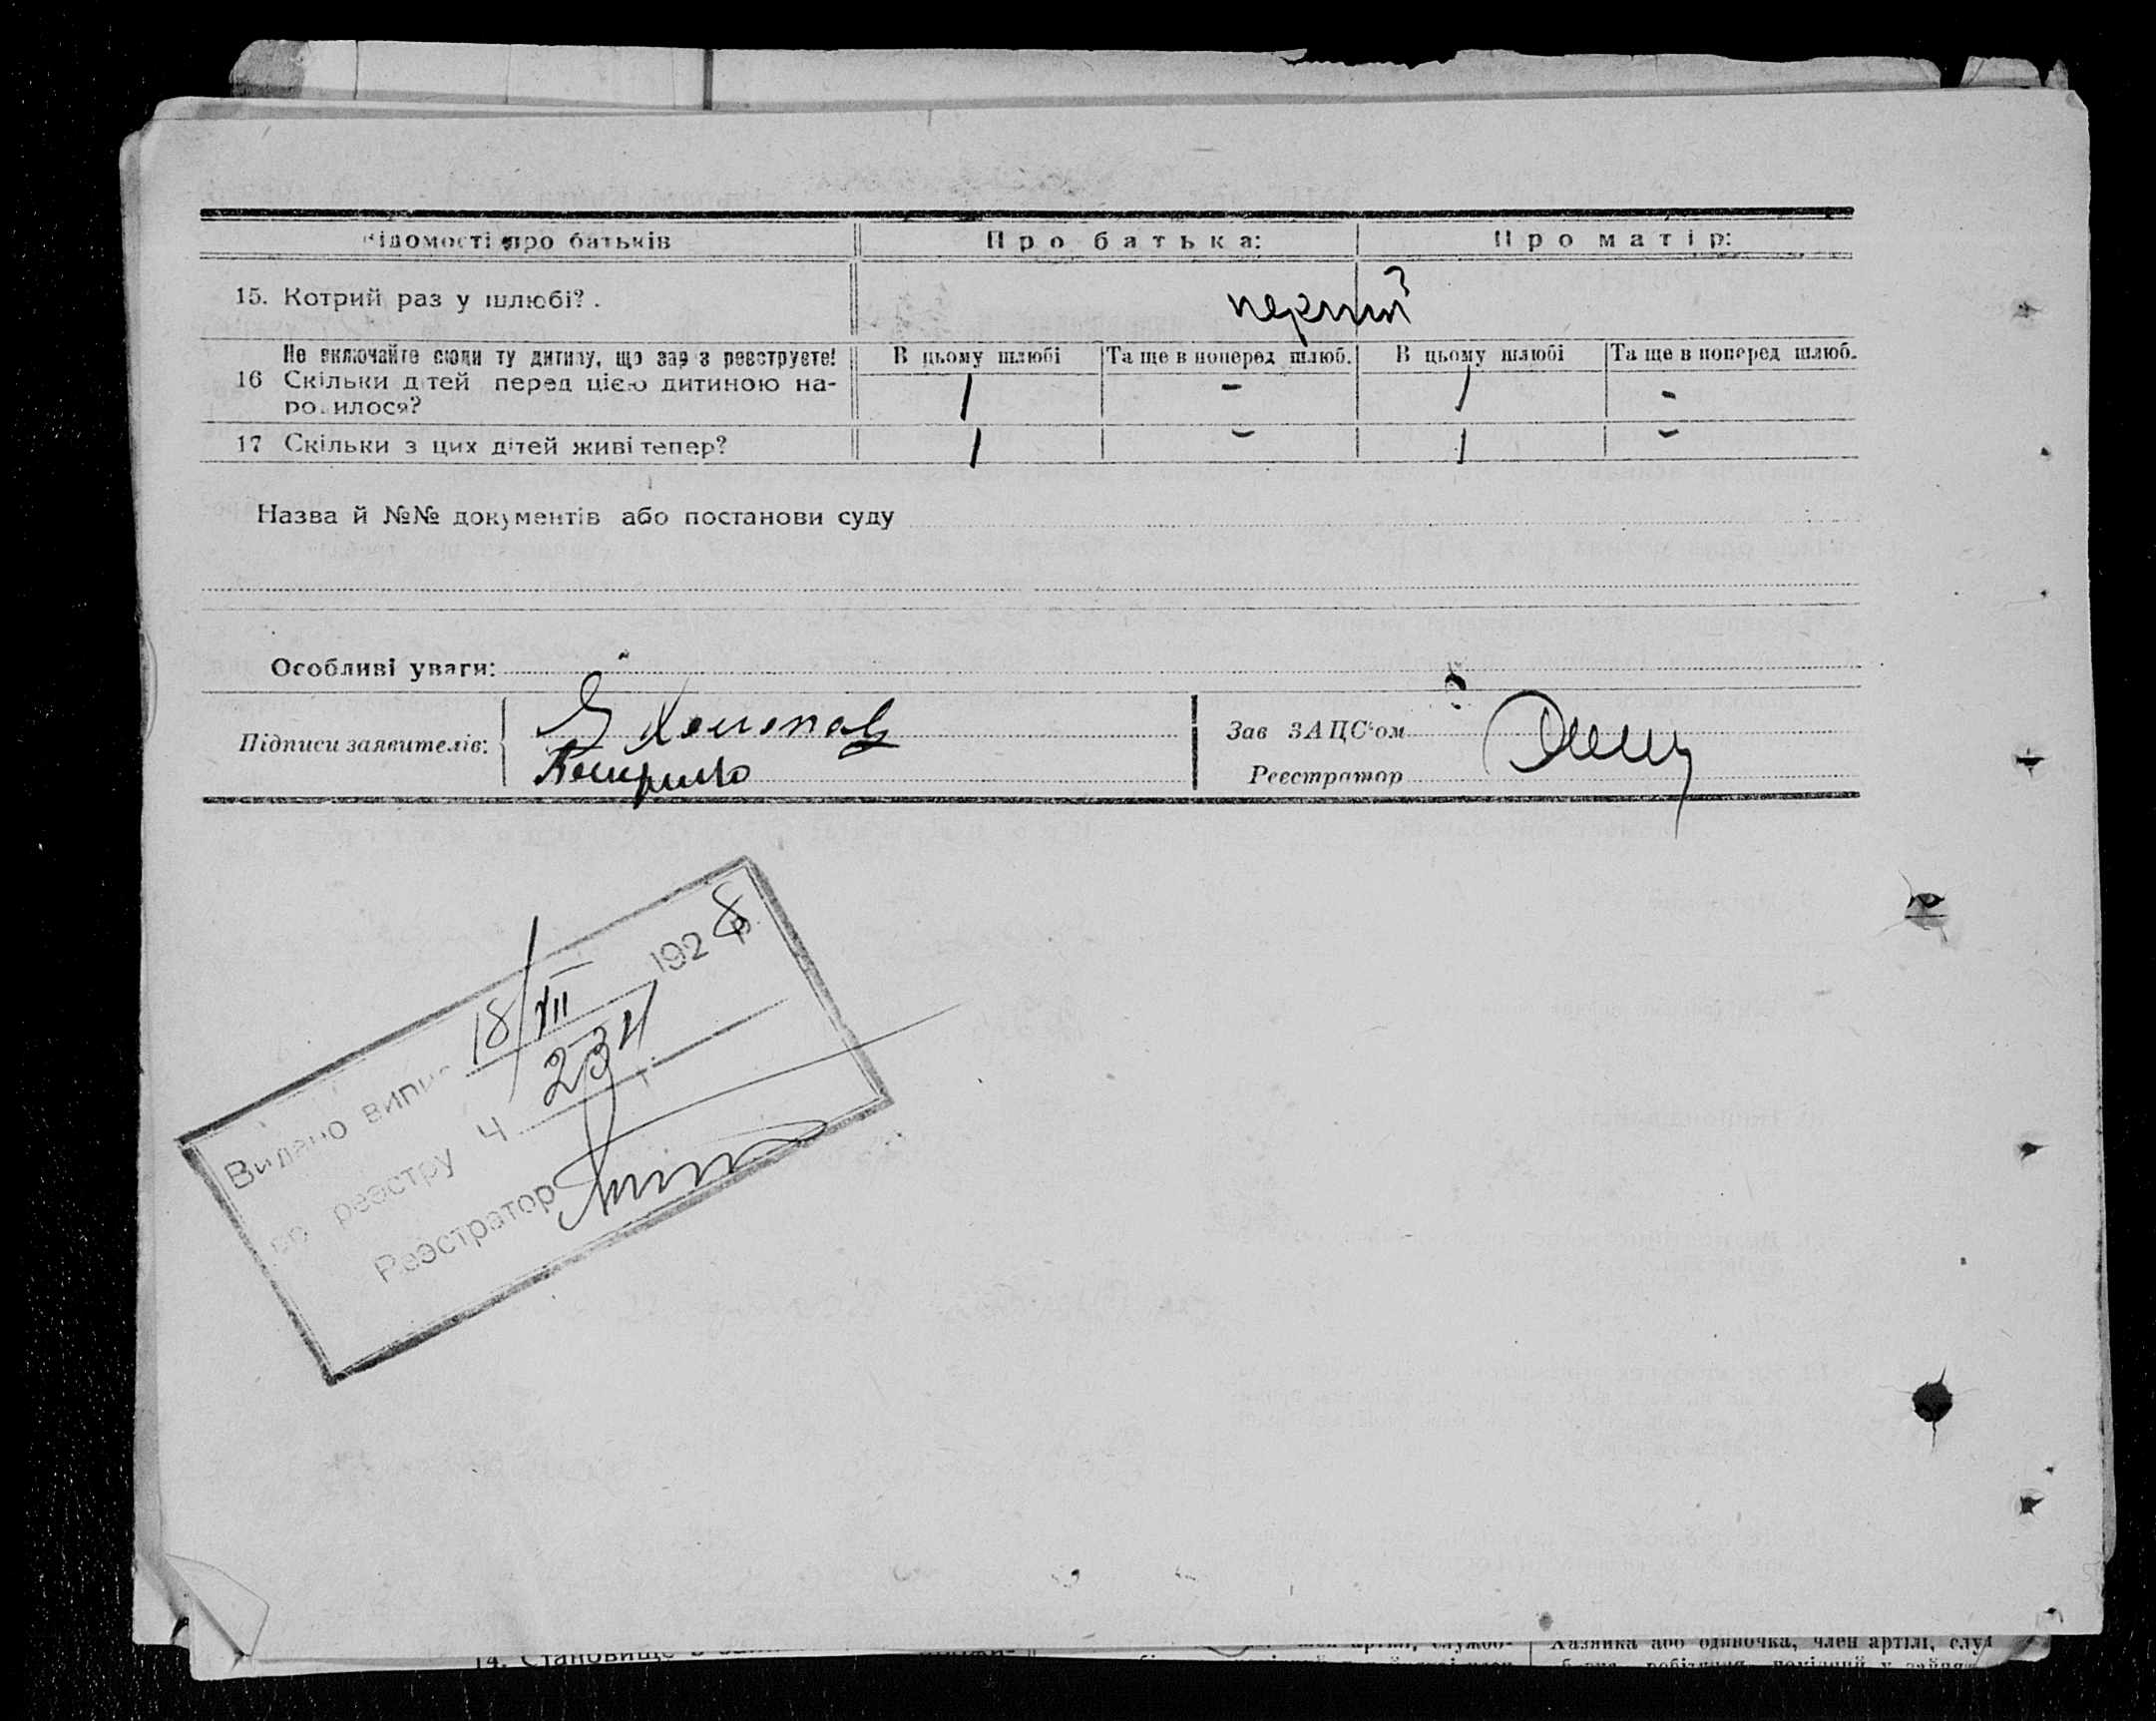 Відомості про батьків Про батька: Про матір:
15. Котрий раз у шлюбі? перший
Не включайте сюди ту дитину, що зараз реєструєте! В цьому шлюбі Та ще в поперед шлюб. В цьому шлюбі Та ще в поперед шлюб.
16 Скільки дітей перед цією дитиною на-
родилося? 1 - 1 -
17 Скільки з цих дітей живі тепер? 1 - 1 -
Назва й №№ документів або постанови суду
Особливі уваги:
Підписи заявителів:
Зав ЗАЦС'ом
Реєстратор
Видано випис 18/VII 1928 р.
по реєстру Ч 234
Реєстратор
14. Становище в
член артілі, службо- Хазяйка або одиночка, член артілі, служ